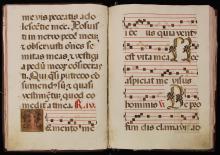 me vis peccatis ado
lescentie mee. Posu
isti in nervo pedē meū
et observasti oīnes se
mitas meas, et vestigia
pedum meoꝝ considerasti
Qui quasi putredo cō
sumendus sum, et quasi
vestimentū, quod co
meditur a tinea. R. iv.
emento me
i de us quia vent
est vita me a N
aspiciat me visus
hominis V De pro
fun dis clama vi ad